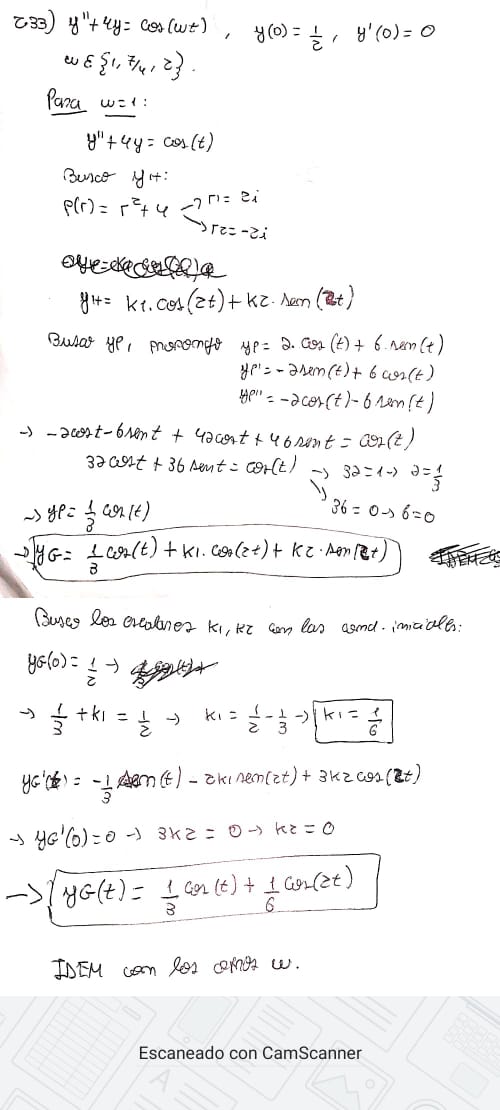 233) y'' + 4y = cos(wt) , y(0) = 1/2 , y'(0) = 0
w ∈ {1, 7/4, 2}.
Para w=1:
y'' + 4y = cos(t)
Busco yH:
P(r) = r² + 4 → r1 = 2i
→ r2 = -2i
yH = k1.cos(2t) + k2.sen(2t)
Busco yP, propongo yP = a.cos(t) + b.sen(t)
yP' = -a sen(t) + b cos(t)
yP'' = -a cos(t) - b sen(t)
→ -a cost - b sent + 4a cost + 4b sent = cos(t)
3a cost + 3b sent = cos(t) → 3a = 1 → a = 1/3
3b = 0 → b = 0
→ yP = 1/3 cos(t)
→ yG = 1/3 cos(t) + k1.cos(2t) + k2.sen(2t)
Busco los escalares k1, k2 con las cond. iniciales:
yG(0) = 1/2 →
→ 1/3 + k1 = 1/2 → k1 = 1/2 - 1/3 → k1 = 1/6
yG'(t) = -1/3 sen(t) - 2k1 sen(2t) + 3k2 cos(2t)
→ yG'(0) = 0 → 3k2 = 0 → k2 = 0
→ yG(t) = 1/3 cos(t) + 1/6 cos(2t)
IDEM con los otros w.
Escaneado con CamScanner